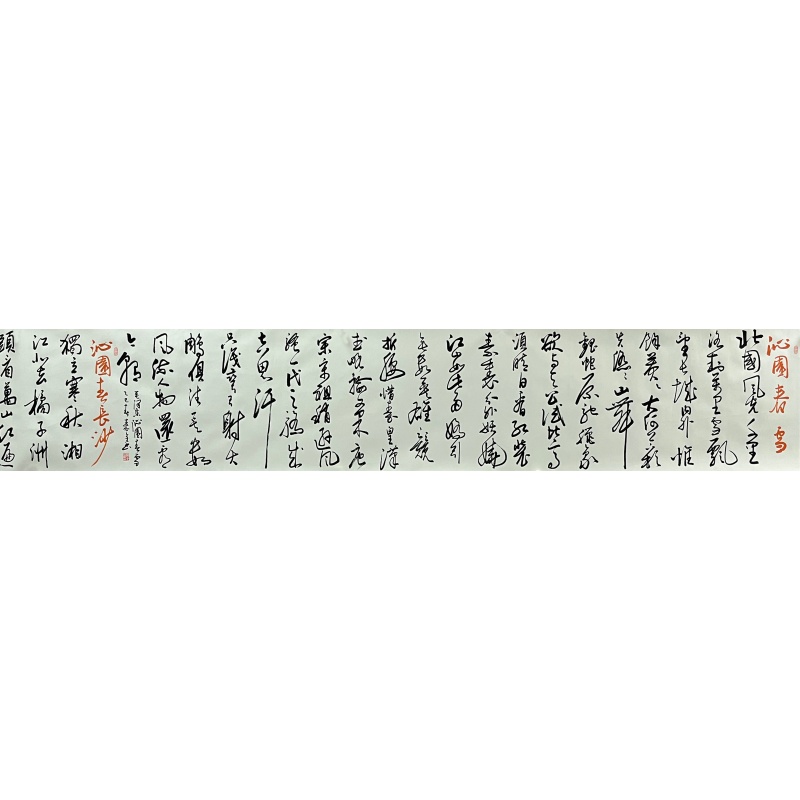 沁園春 雪
北國風光千里
冰封萬里雪飄
望長城內外惟
餘莽莽大河上下頓
失滔滔山舞
銀蛇原馳蠟象
欲與天公試比高
須晴日看紅裝
素裹分外妖嬈
江山如此多嬌引
無數英雄競
折腰惜秦皇漢
武略輸文采唐
宗宋祖稍遜風
騷一代天驕成
吉思汗
只識彎弓射大
鵰俱往矣數
風流人物還看
今朝
毛澤東沁園春雪
沁園春長沙
獨立寒秋湘
江北去橘子洲
頭看萬山紅遍